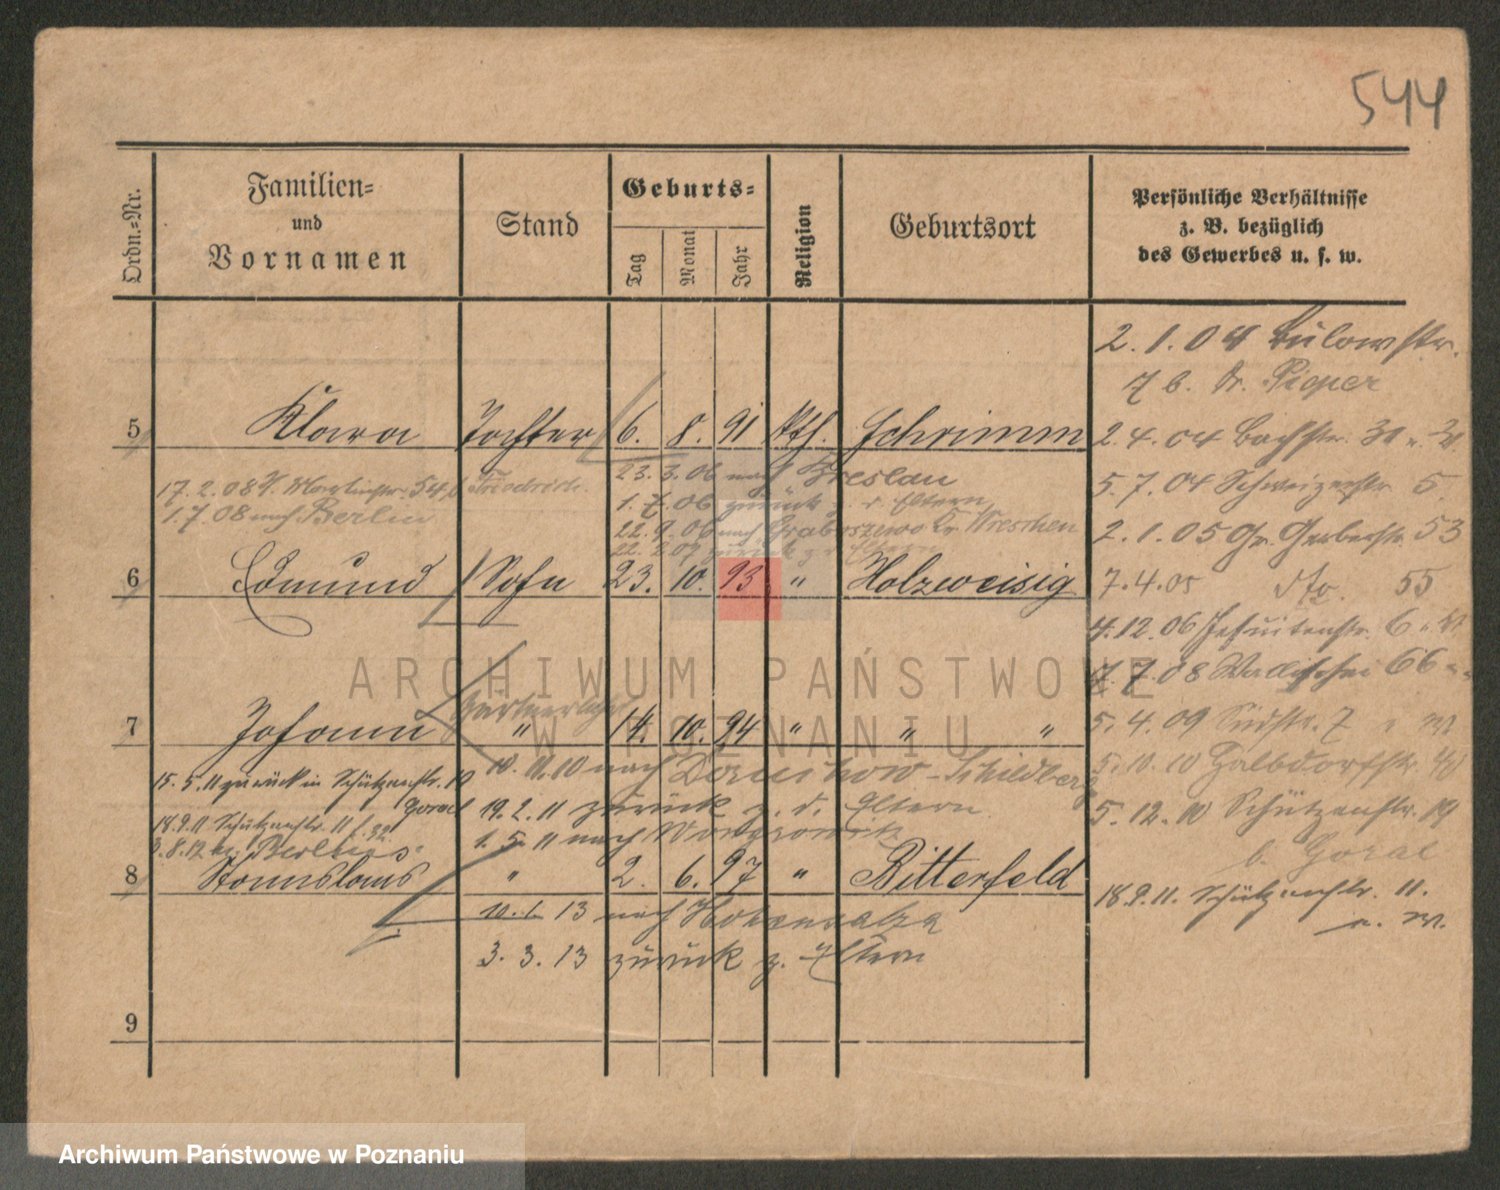 544
Ordn.=Nr.
Familien=
und
Vornamen
Stand
Geburts=
Tag
Monat
Jahr
Religion
Geburtsort
Persönliche Verhältnisse
z. B. bezüglich
des Gewerbes u. s. w.
2.1.04 Bülowstr.
7 b. Pieper
5 Klara Tochter 6. 8. 91 kth. Schrimm
2.4.04 Bachstr.
17.2.08 Martinstr. 54 Friedrich
23.3.06 nach Breslau
5.7.04 Schweizerstr. 5
1.7.08 nach Berlin
1.7.06 zurück z. d. Eltern
22.9.06 nach Graboszewo Kr. Wreschen
2.1.05 Gr. Gerberstr. 53
22.2.07 zurück z. d. Eltern
6 Edmund Sohn 23. 10. 93 " Holzweisig
7.4.05 dto. 55
4.12.06 Jesuitenstr. 6
7.7.08 Wallischei 66
ARCHIWUM PAŃSTWOWE
W POZNANIU
7 Johann " 14. 10. 94 " " "
5.4.09 Südstr. 7
10.11.10 nach Schildberg
5.10.10 Halbdorfstr.
15.5.11 zurück in Schützenstr. 19
Goral
19.2.11 zurück z. d. Eltern
5.12.10 Schützenstr. 19
b. Goral
18.9.11 Schützenstr. 11
1.5.11 nach Wongrowitz
8 Stanislaus " 2. 6. 97 " Bitterfeld
18.9.11. Schützenstr. 11.
10.1.13 nach Hohensalza
3.3.13 zurück z. Eltern
9
Archiwum Państwowe w Poznaniu